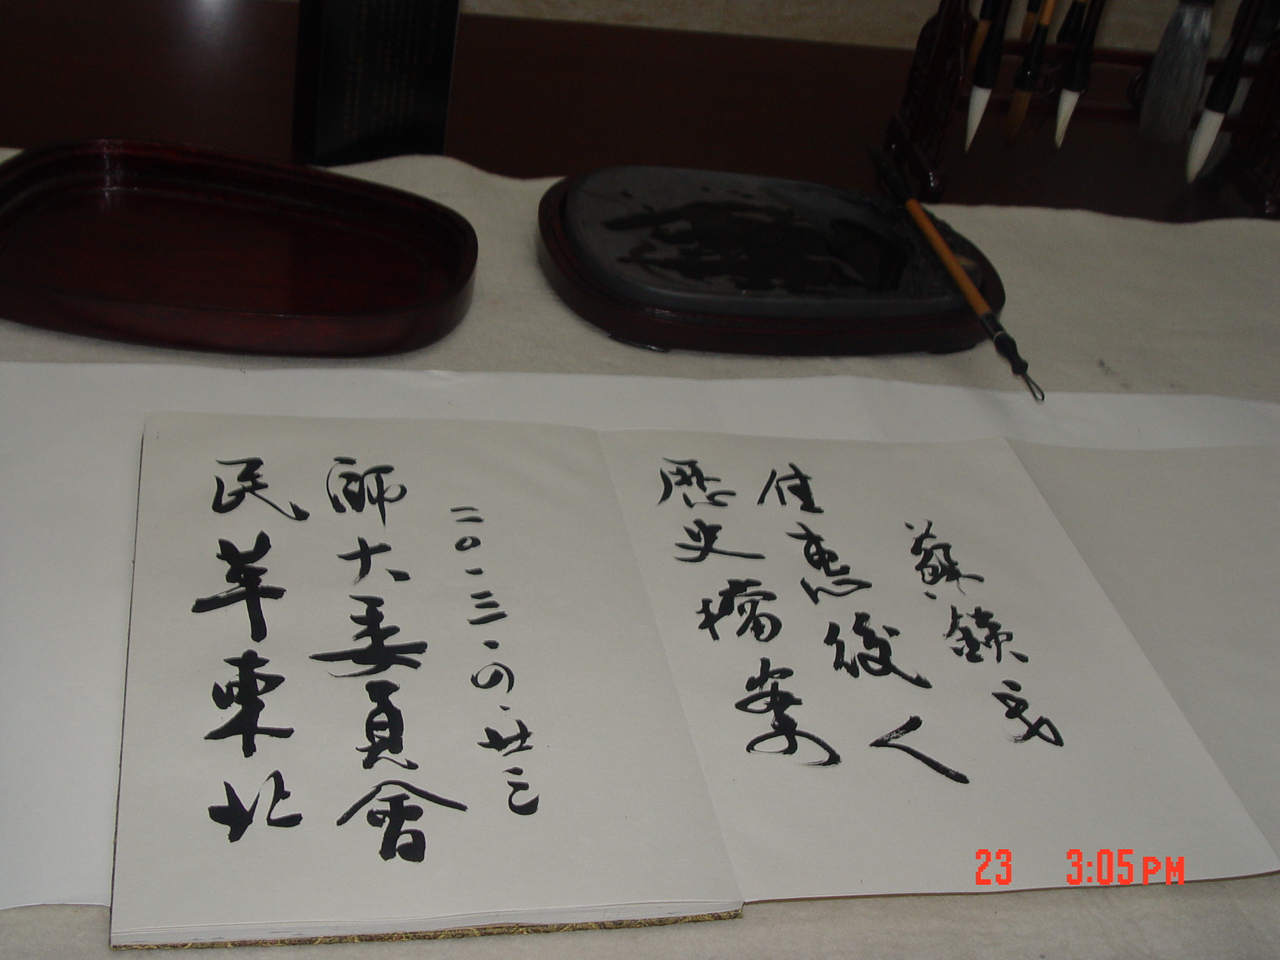 民革東北
師大委員會
二〇一三·四·廿三
歷史檔案
佳惠後人
蘇鐵
23 3:05PM